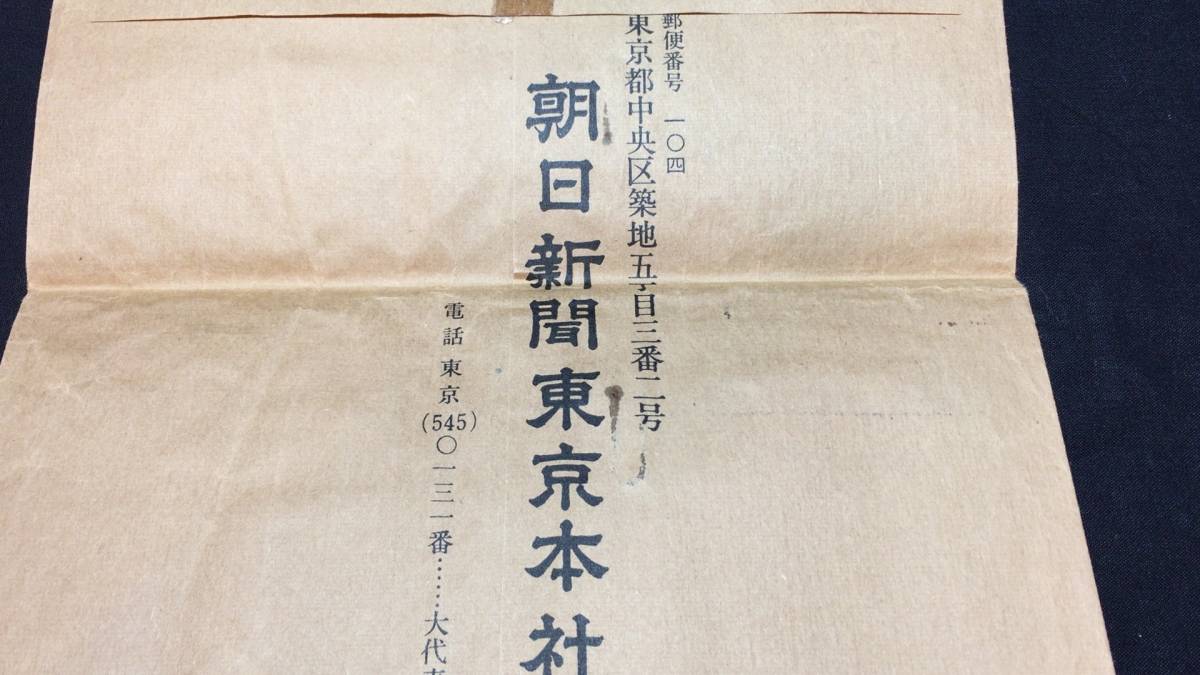 郵便番号 一〇四
東京都中央区築地五丁目三番二号
朝日新聞東京本社
電話 東京(545)〇一三一番……大代表